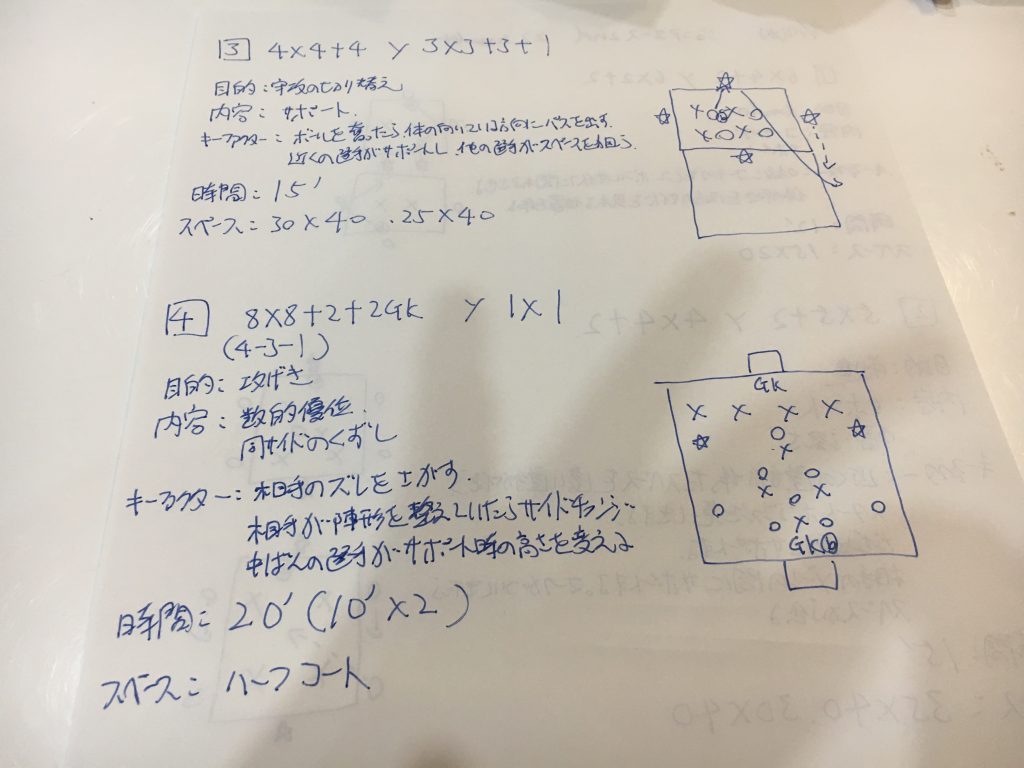 3 4×4+4 y 3×3+3+1
目的:守攻の切り替え
内容: サポート
キーファクター: ボールを奪ったら体の向いている方向にパスを出す.
近くの選手がサポートし、他の選手がスペースを狙う
時間:15'
スペース:30×40 .25×40
4 8×8+2+2GK y 1×1
(4-3-1)
目的:攻げき
内容:数的優位.
同サイドのくずし
キーファクター:相手のズレを上がす.
相手が陣形を整えていたらサイドチェンジ
中ばんの選手がサポート時の高さを変える
時間:20'(10'×2)
スペース:ハーフコート
GK
GK b